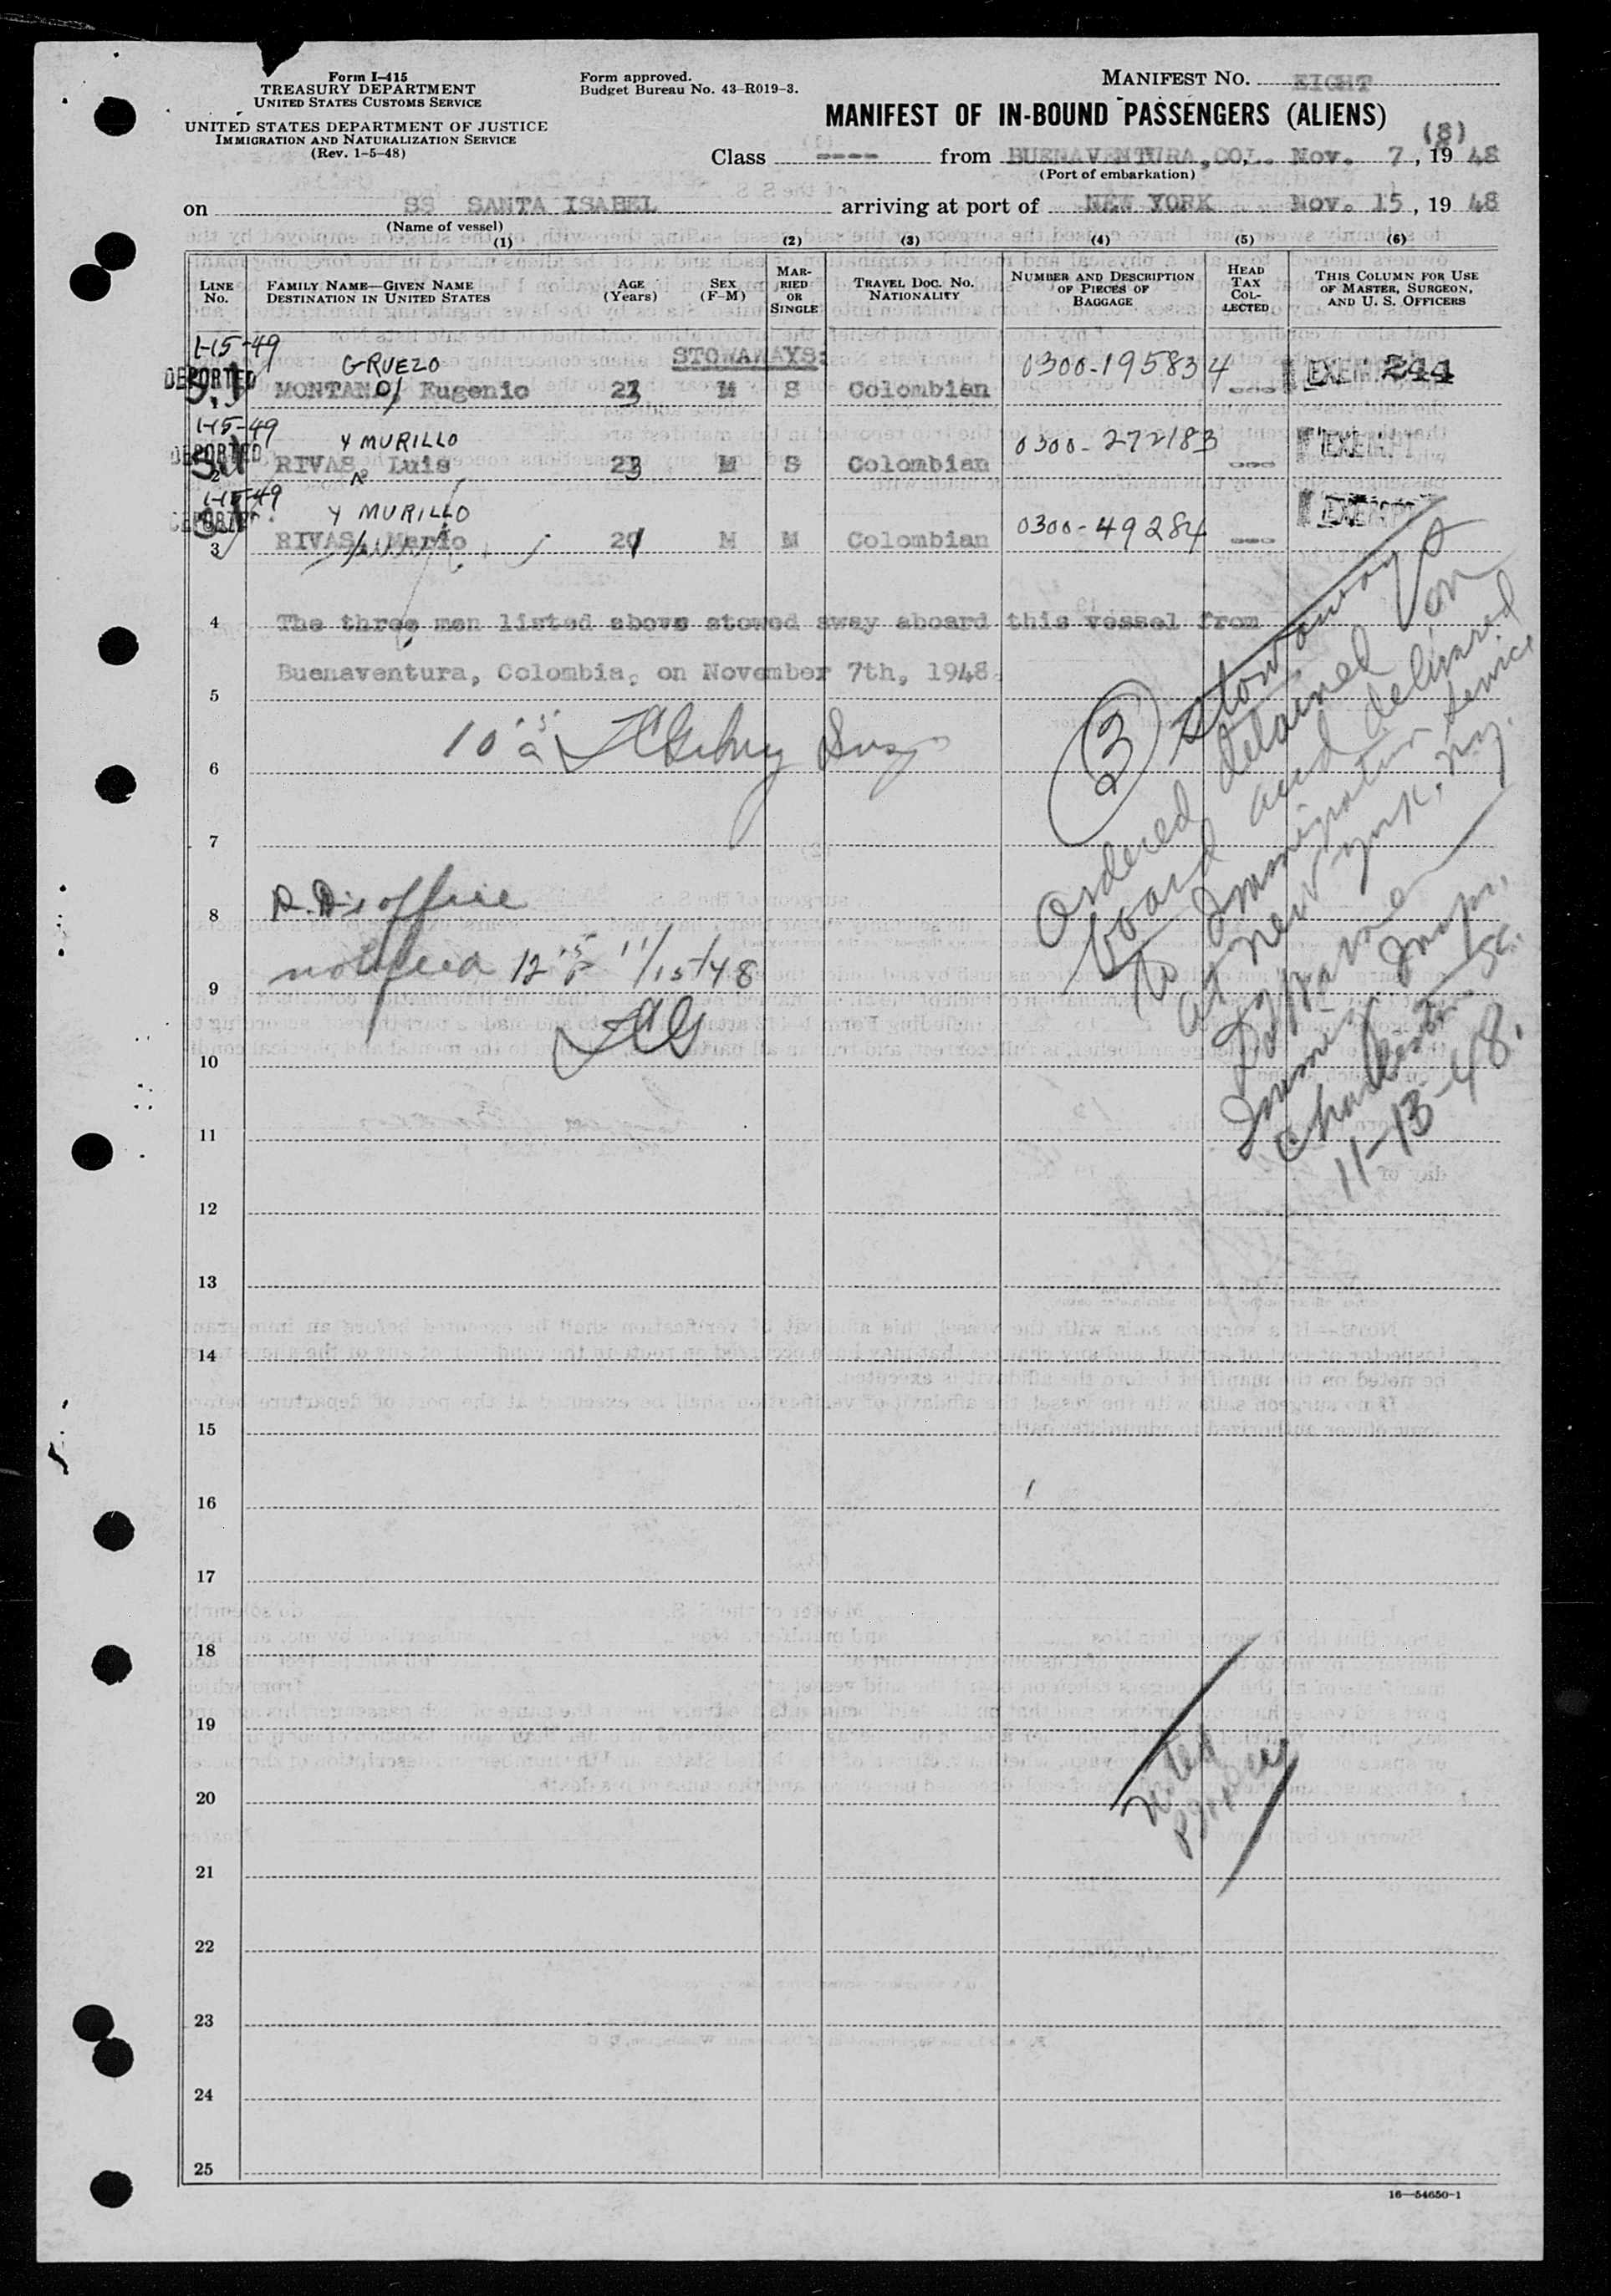 Form I-415
TREASURY DEPARTMENT
UNITED STATES CUSTOMS SERVICE
UNITED STATES DEPARTMENT OF JUSTICE
IMMIGRATION AND NATURALIZATION SERVICE
(Rev. 1-5-48)
Form approved.
Budget Bureau No. 43-R019-3.
MANIFEST NO. EIGHT
MANIFEST OF IN-BOUND PASSENGERS (ALIENS)
(8)
Class ---- from BUENAVENTURA, COL. Nov. 7, 19 48
(Port of embarkation)
on SS SANTA ISABEL arriving at port of NEW YORK Nov. 15, 19 48
(Name of vessel)
(1) (2) (3) (4) (5) (6)
LINE NO. FAMILY NAME—GIVEN NAME DESTINATION IN UNITED STATES AGE (Years) SEX (F-M) MARRIED OR SINGLE TRAVEL DOC. NO. NATIONALITY NUMBER AND DESCRIPTION OF PIECES OF BAGGAGE HEAD TAX COLLECTED THIS COLUMN FOR USE OF MASTER, SURGEON, AND U. S. OFFICERS
STOWAWAYS:
1-15-49 GRUEZO 0300-195834
DEPORTED MONTANO, Eugenio M S Colombian --- EXEMPT 244
1-15-49 Y MURILLO 0300-272183
DEPORTED 2 RIVAS, Luis 23 M S Colombian --- EXEMPT
1-15-49 Y MURILLO 0300-49284
DEPORTED 3 RIVAS, Mario M M Colombian --- EXEMPT
4 The three men listed above stowed away aboard this vessel from
Buenaventura, Colombia, on November 7th, 1948.
5
6
7
8 office
9 notified 12 11/15/48
10
11
12
13
14
15
16
17
18
19
20
21
22
23
24
25
(3) Stowaways
Ordered detained on
board and delivered
to Immigration Service
at New York, N.Y.
Immig. Insp.
Charleston S.C.
11-13-48.
noted
16—54650-1